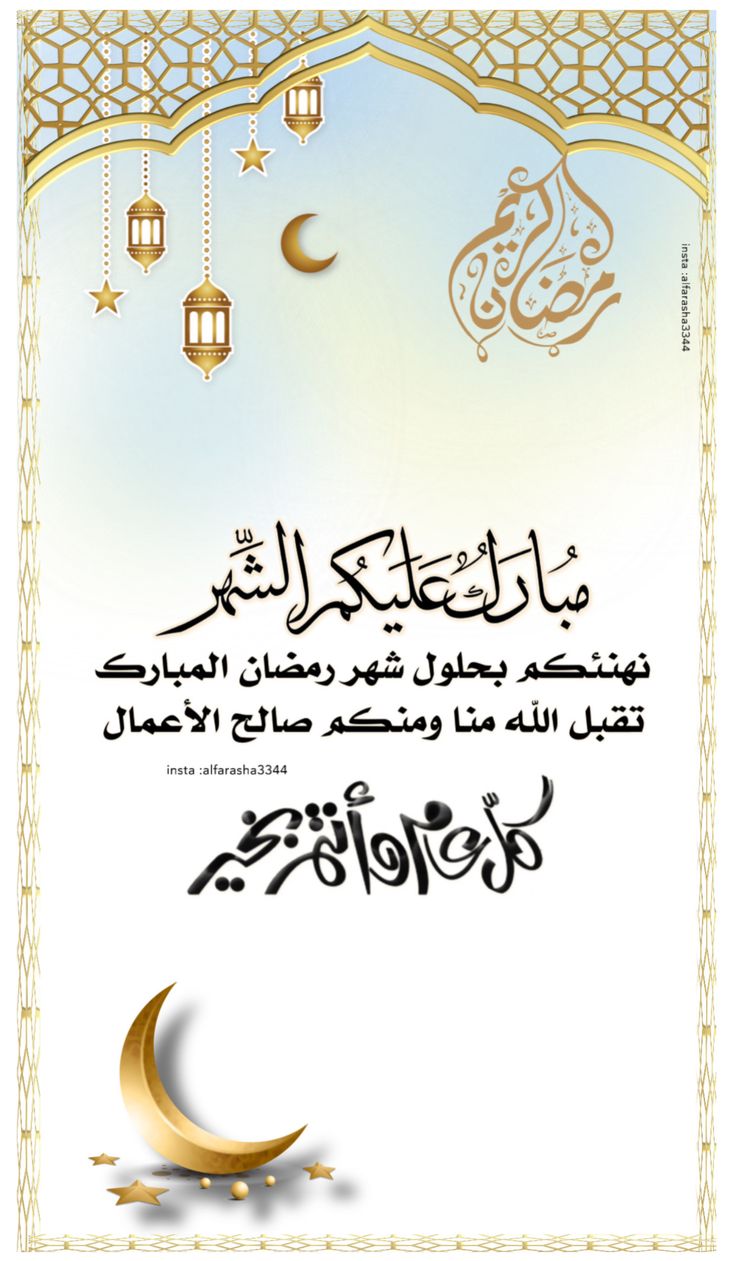 رمضان كريم
insta :alfarasha3344
مُبارَكٌ عَلَيكُم الشَّهر
نهنئكم بحلول شهر رمضان المبارك
تقبل الله منا ومنكم صالح الأعمال
insta :alfarasha3344
كلّ عام وأنتم بخير